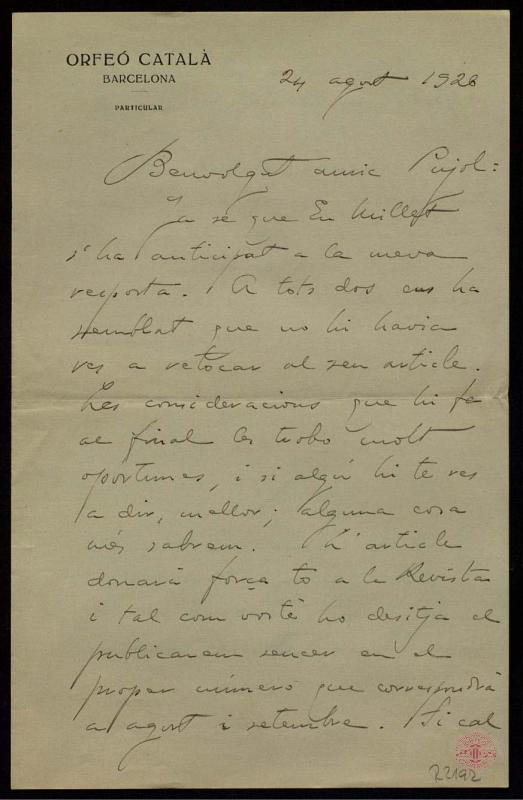 ORFEÓ CATALÀ
BARCELONA
PARTICULAR
24 agost 1926
Benvolgut amic Pujol:
Ja sé que En Millet
s'ha anticipat a la meva
resposta. A tots dos ens ha
semblat que no hi havia
res a retocar al seu article.
Les consideracions que hi fa
al final les trobo molt
oportunes, i si algú hi té res
a dir, mellor; alguna cosa
més sabrem. L'article
donarà força tò a la Revista
i tal com vostè ho desitja el
publicarem sencer en el
proper número que correspondrà
a agost i setembre. Si cal
R2192